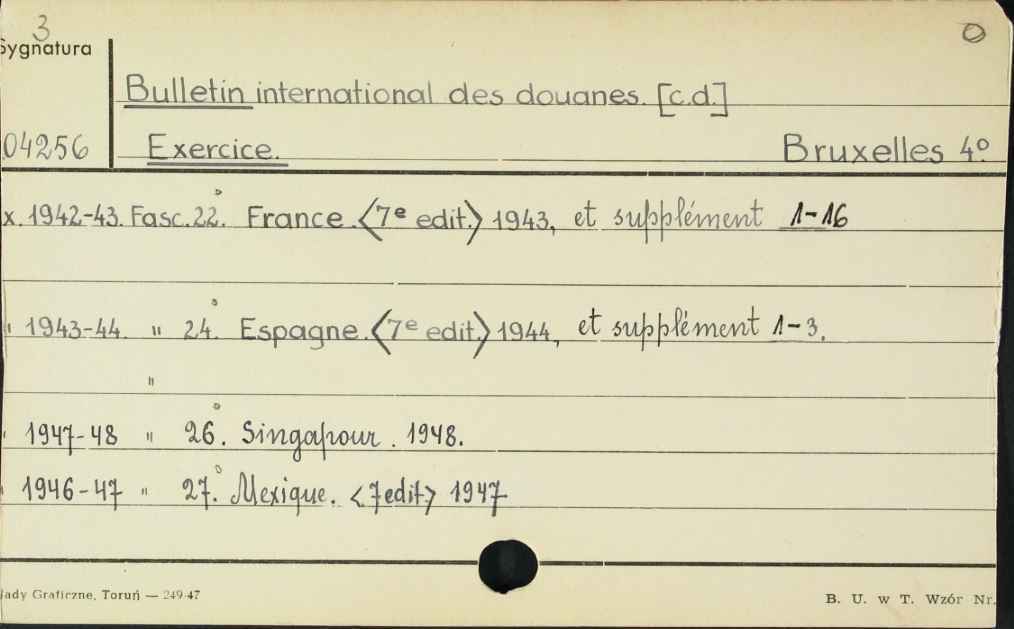 3
Sygnatura
Bulletin international des douanes. [c.d.]
04256 Exercice. Bruxelles 4º.
x. 1942-43. Fasc. 22. France. <7e edit.> 1943, et supplément 1-16
" 1943-44. " 24. Espagne. <7e edit.> 1944, et supplément 1-3.
"
" 1947-48 " 26. Singapour. 1948.
" 1946-47 " 27. Mexique. <7 edit> 1947
łady Graficzne, Toruń — 249-47 B. U. w T. Wzór Nr.